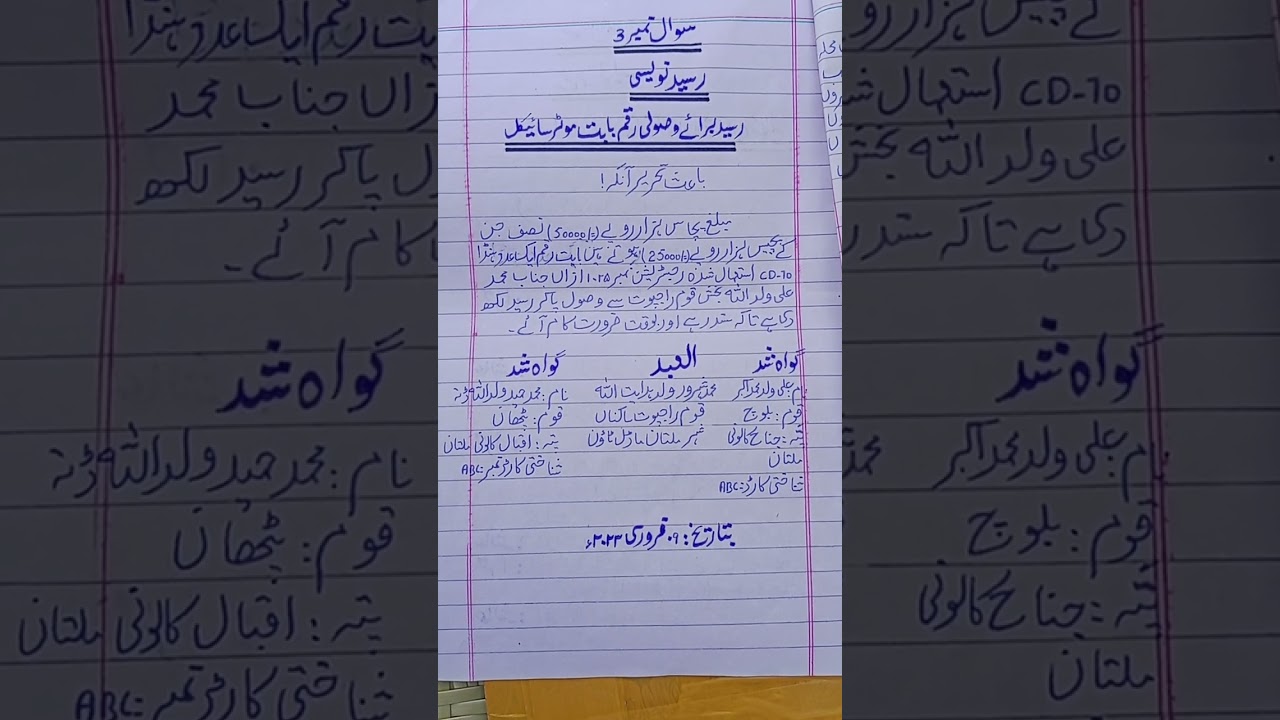 سوال نمبر 3
رسید نویسی
رسید برائے وصولی رقم بابت موٹر سائیکل
باعث تحریر آنکہ!
مبلغ پچاس ہزار روپے (50000/-) نصف جن
کے پچیس ہزار روپے (25000/-) ہوتے ہیں بابت رقم ایک عدد ہنڈا
CD-70 استعمال شدہ رجسٹریشن نمبر ۱۰۲۵ ازاں جناب محمد
علی ولد اللہ بخش قوم راجپوت سے وصول پا کر رسید لکھ
دی ہے تاکہ سند رہے اور بوقت ضرورت کام آئے۔
گواہ شد العبد گواہ شد
نام: علی ولد محمد اکبر محمد سرور ولد ہدایت اللہ نام: محمد حمید ولد اللہ ڈتہ
قوم: بلوچ قوم راجپوت ساکناں قوم: پٹھان
پتہ: جناح کالونی شہر ملتان ماڈل ٹاؤن پتہ: اقبال کالونی ملتان
ملتان شناختی کارڈ نمبر: ABC
شناختی کارڈ: ABC
بتاریخ: ۰۹ فروری ۲۰۲۳ء